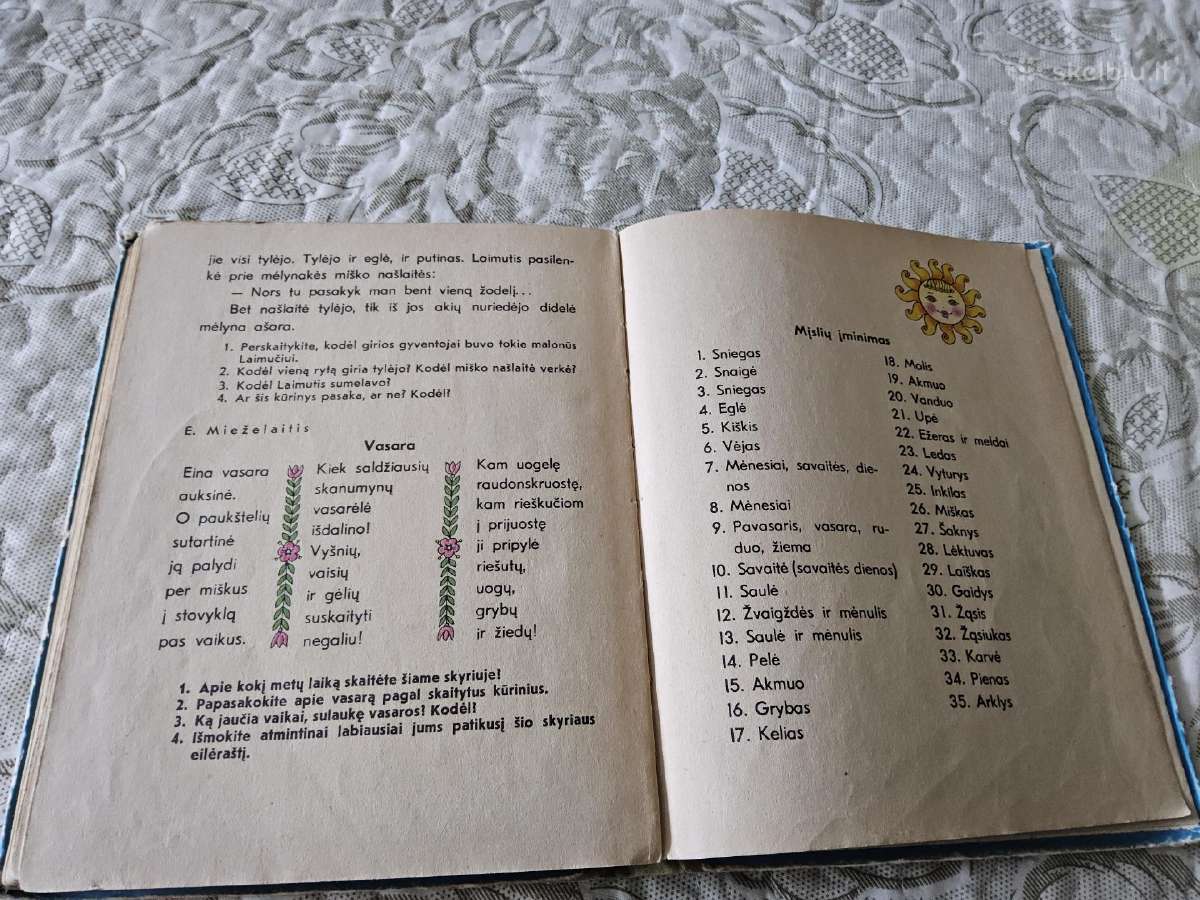 jie visi tylėjo. Tylėjo ir eglė, ir putinas. Laimutis pasilen-
kė prie mėlynakės miško našlaitės:
— Nors tu pasakyk man bent vieną žodelį...
Bet našlaitė tylėjo, tik iš jos akių nuriedėjo didelė
mėlyna ašara.
1. Perskaitykite, kodėl girios gyventojai buvo tokie malonūs
Laimučiui.
2. Kodėl vieną rytą giria tylėjo? Kodėl miško našlaitė verkė?
3. Kodėl Laimutis sumelavo?
4. Ar šis kūrinys pasaka, ar ne? Kodėl?
E. Mieželaitis
Vasara
Eina vasara
auksinė.
O paukštelių
sutartinė
ją palydi
per miškus
į stovyklą
pas vaikus.
Kiek saldžiausių
skanumynų
vasarėlė
išdalino!
Vyšnių,
vaisių
ir gėlių
suskaityti
negaliu!
Kam uogelę
raudonskruostę,
kam rieškučiom
į prijuostę
ji pripylė
riešutų,
uogų,
grybų
ir žiedų!
1. Apie kokį metų laiką skaitėte šiame skyriuje?
2. Papasakokite apie vasarą pagal skaitytus kūrinius.
3. Ką jaučia vaikai, sulaukę vasaros? Kodėl?
4. Išmokite atmintinai labiausiai jums patikusį šio skyriaus
eilėraštį.
Mįslių įminimas
1. Sniegas
2. Snaigė
3. Sniegas
4. Eglė
5. Kiškis
6. Vėjas
7. Mėnesiai, savaitės, die-
nos
8. Mėnesiai
9. Pavasaris, vasara, ru-
duo, žiema
10. Savaitė (savaitės dienos)
11. Saulė
12. Žvaigždės ir mėnulis
13. Saulė ir mėnulis
14. Pelė
15. Akmuo
16. Grybas
17. Kelias
18. Molis
19. Akmuo
20. Vanduo
21. Upė
22. Ežeras ir meldai
23. Ledas
24. Vyturys
25. Inkilas
26. Miškas
27. Šaknys
28. Lėktuvas
29. Laiškas
30. Gaidys
31. Žąsis
32. Žąsiukas
33. Karvė
34. Pienas
35. Arklys
skelbiu.lt